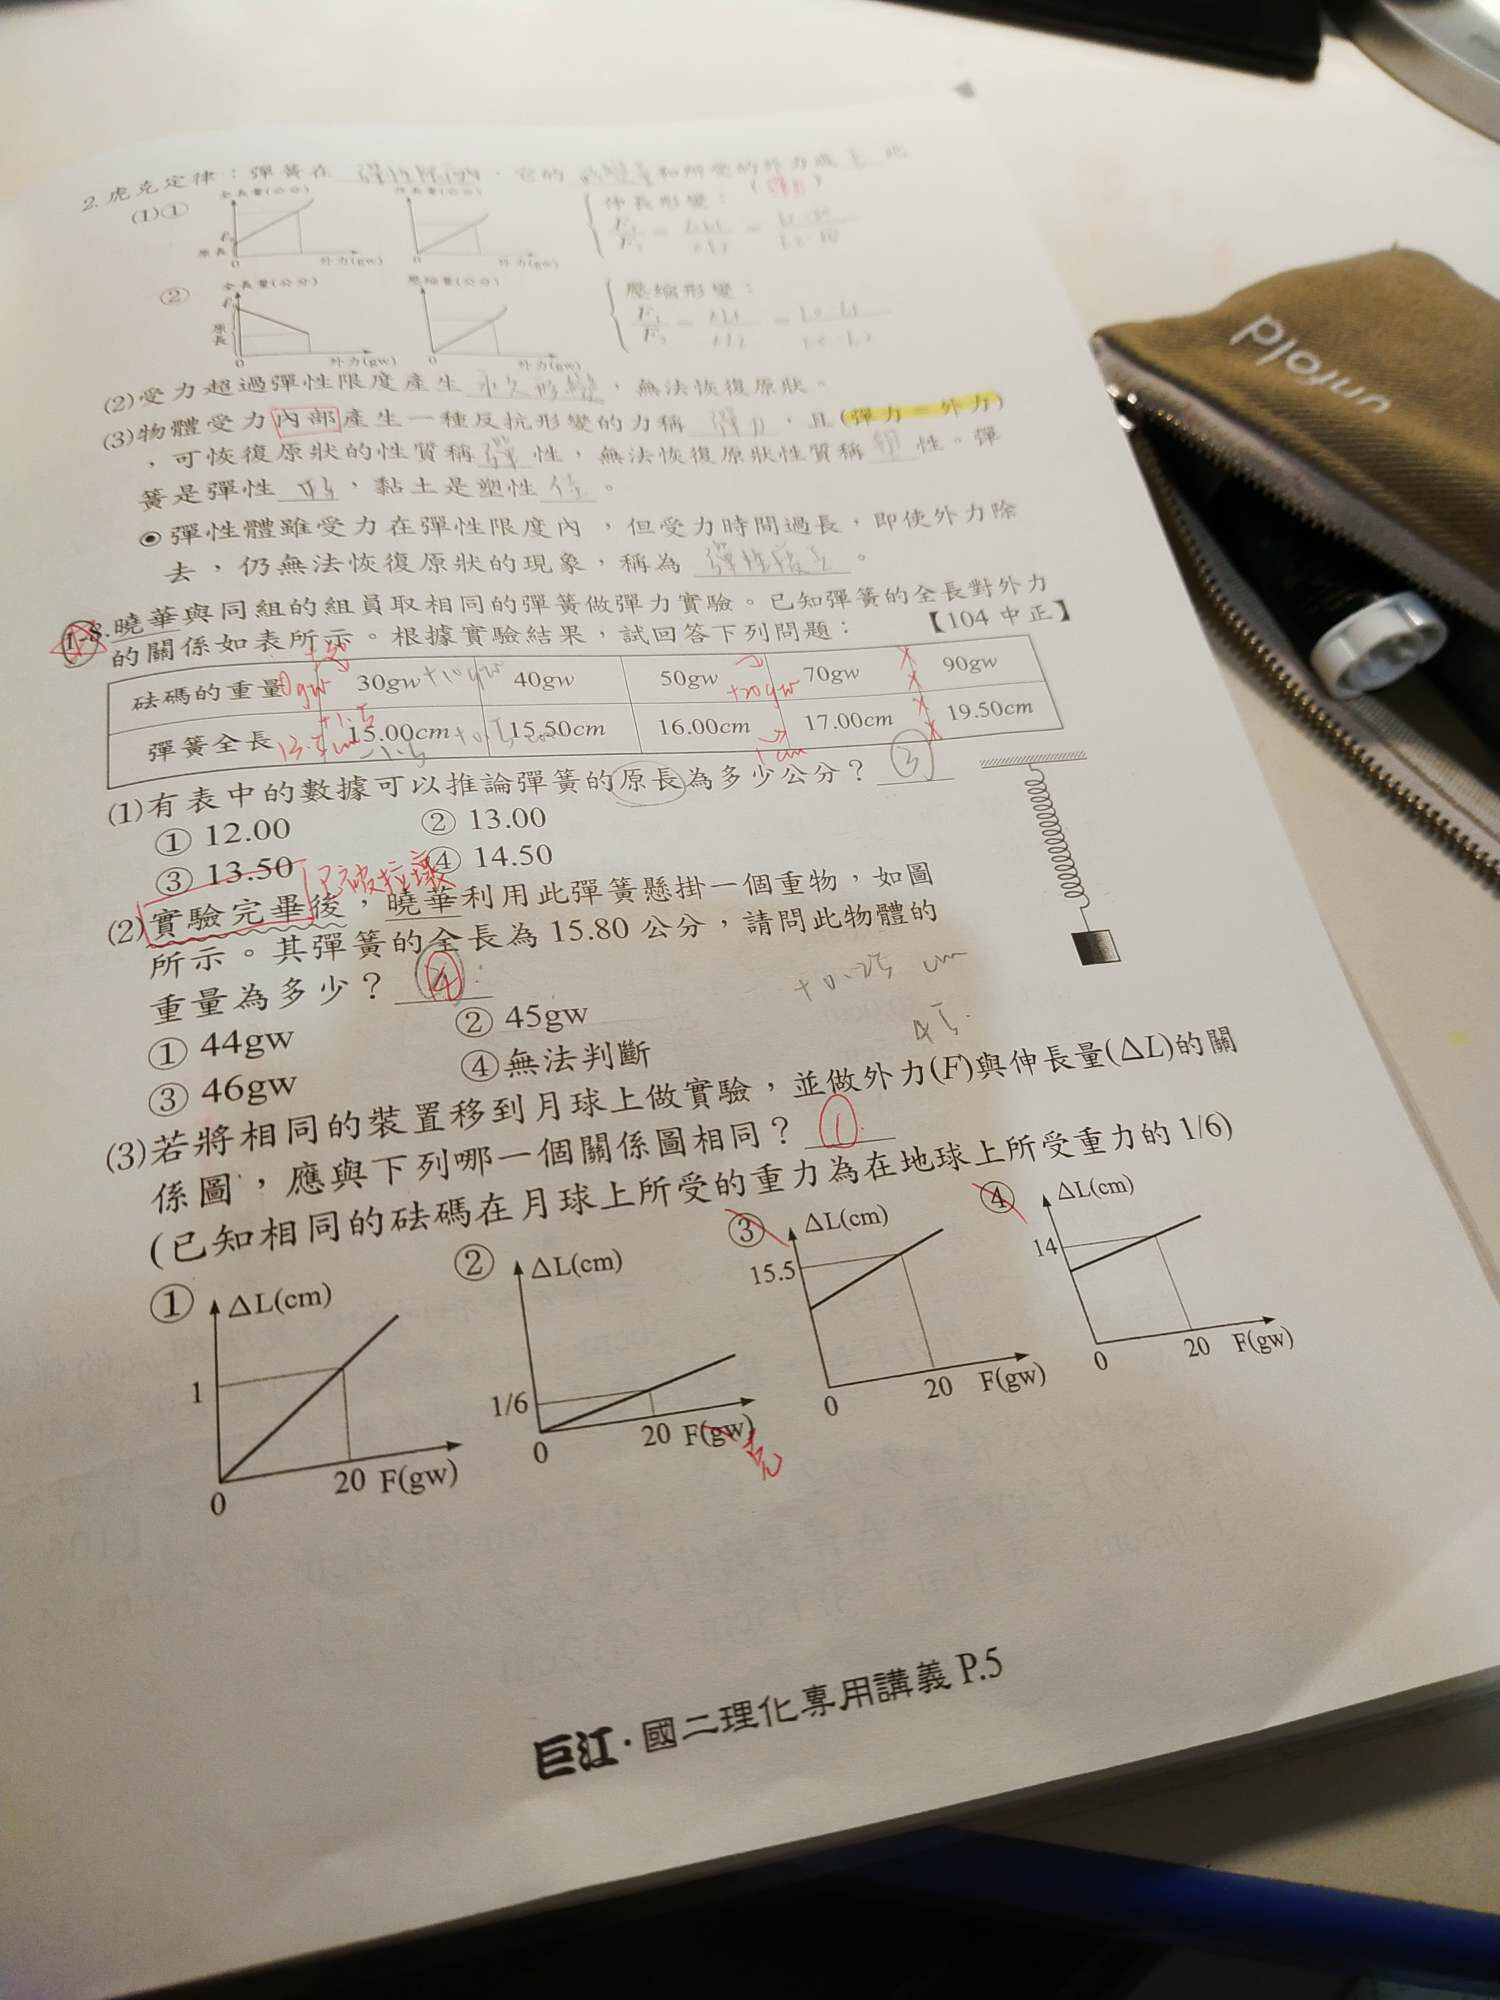 2. 虎克定律：彈簧在 ，它的 和所受的外力成正比
(1)① 全長量(公分) 伸長形變：
原長 0 外力(gw) 0 外力(gw)
② 全長量(公分) 壓縮量(公分) 壓縮形變：
原長 0 外力(gw) 0 外力(gw)
(2)受力超過彈性限度產生 永久形變 ，無法恢復原狀。
(3)物體受力內部產生一種反抗形變的力稱 彈力 ，且(彈力＝外力)
，可恢復原狀的性質稱 彈 性，無法恢復原狀性質稱 性。彈
簧是彈性 ，黏土是塑性 體 。
◉彈性體雖受力在彈性限度內，但受力時間過長，即使外力除
去，仍無法恢復原狀的現象，稱為 彈性疲乏 。
1-8.曉華與同組的組員取相同的彈簧做彈力實驗。已知彈簧的全長對外力
的關係如表所示。根據實驗結果，試回答下列問題： 【104中正】
砝碼的重量 0gw 30gw +10gw 40gw 50gw +20gw 70gw 90gw
彈簧全長 13.5cm 15.00cm 15.50cm 16.00cm 1cm 17.00cm 19.50cm
(1)有表中的數據可以推論彈簧的原長為多少公分？ 3
① 12.00 ② 13.00
③ 13.50 ④ 14.50
已被拉壞
(2)實驗完畢後，曉華利用此彈簧懸掛一個重物，如圖
所示。其彈簧的全長為 15.80 公分，請問此物體的
重量為多少？ 4
+0.25 cm
① 44gw ② 45gw
45
③ 46gw ④無法判斷
(3)若將相同的裝置移到月球上做實驗，並做外力(F)與伸長量(ΔL)的關
係圖，應與下列哪一個關係圖相同？ 1
(已知相同的砝碼在月球上所受的重力為在地球上所受重力的 1/6)
① ΔL(cm) ② ΔL(cm) ③ ΔL(cm) ④ ΔL(cm)
1 1/6 15.5 14
0 20 F(gw) 0 20 F(gw) 0 20 F(gw) 0 20 F(gw)
克
巨江·國二理化專用講義 P.5
unfold